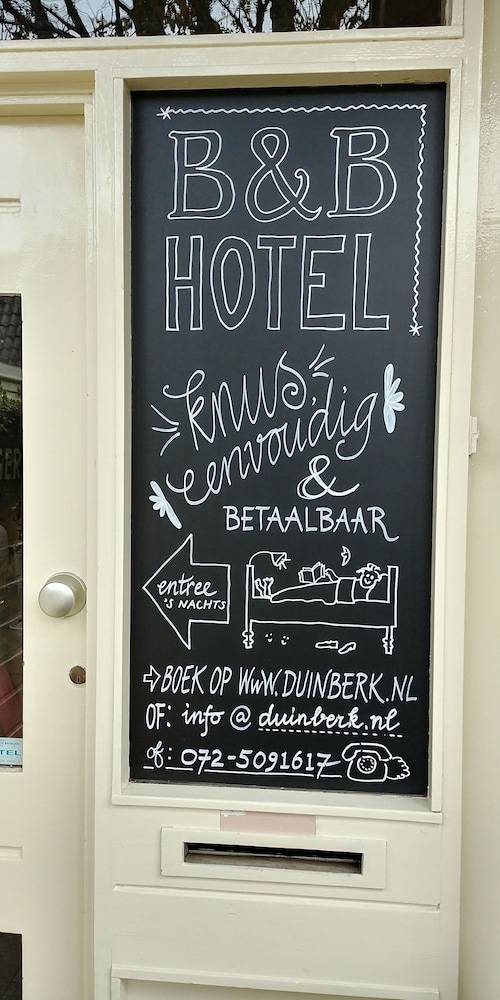 B&B
HOTEL
knus,
eenvoudig
&
BETAALBAAR
entree
'S NACHTS
BOEK OP WWW.DUINBERK.NL
OF: info @ duinberk.nl
of: 072-5091617